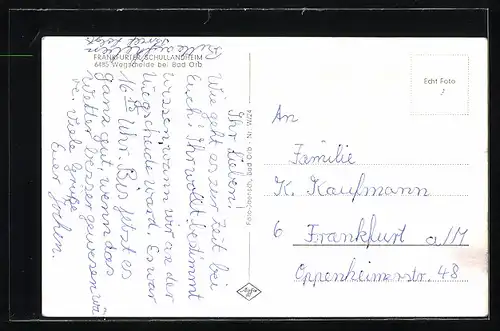 Bitte
Brief folgt
FRANKFURTER SCHULLANDHEIM
6485 Wegscheide bei Bad Orb
Ihr Lieben!
Wie geht es zur Zeit bei
Euch! Ihr wollt bestimmt
wissen wann wir an der
Wegscheide ward. Es war
16 Uhr. Bis jetzt es
ganz gut, wenn das
Wetter besser gewesen wä
re. Viele Grüße
Euer Jochen.
Echt Foto
An
Familie
K. Kaufmann
6 Frankfurt a/M
Oppenheimerstr. 48